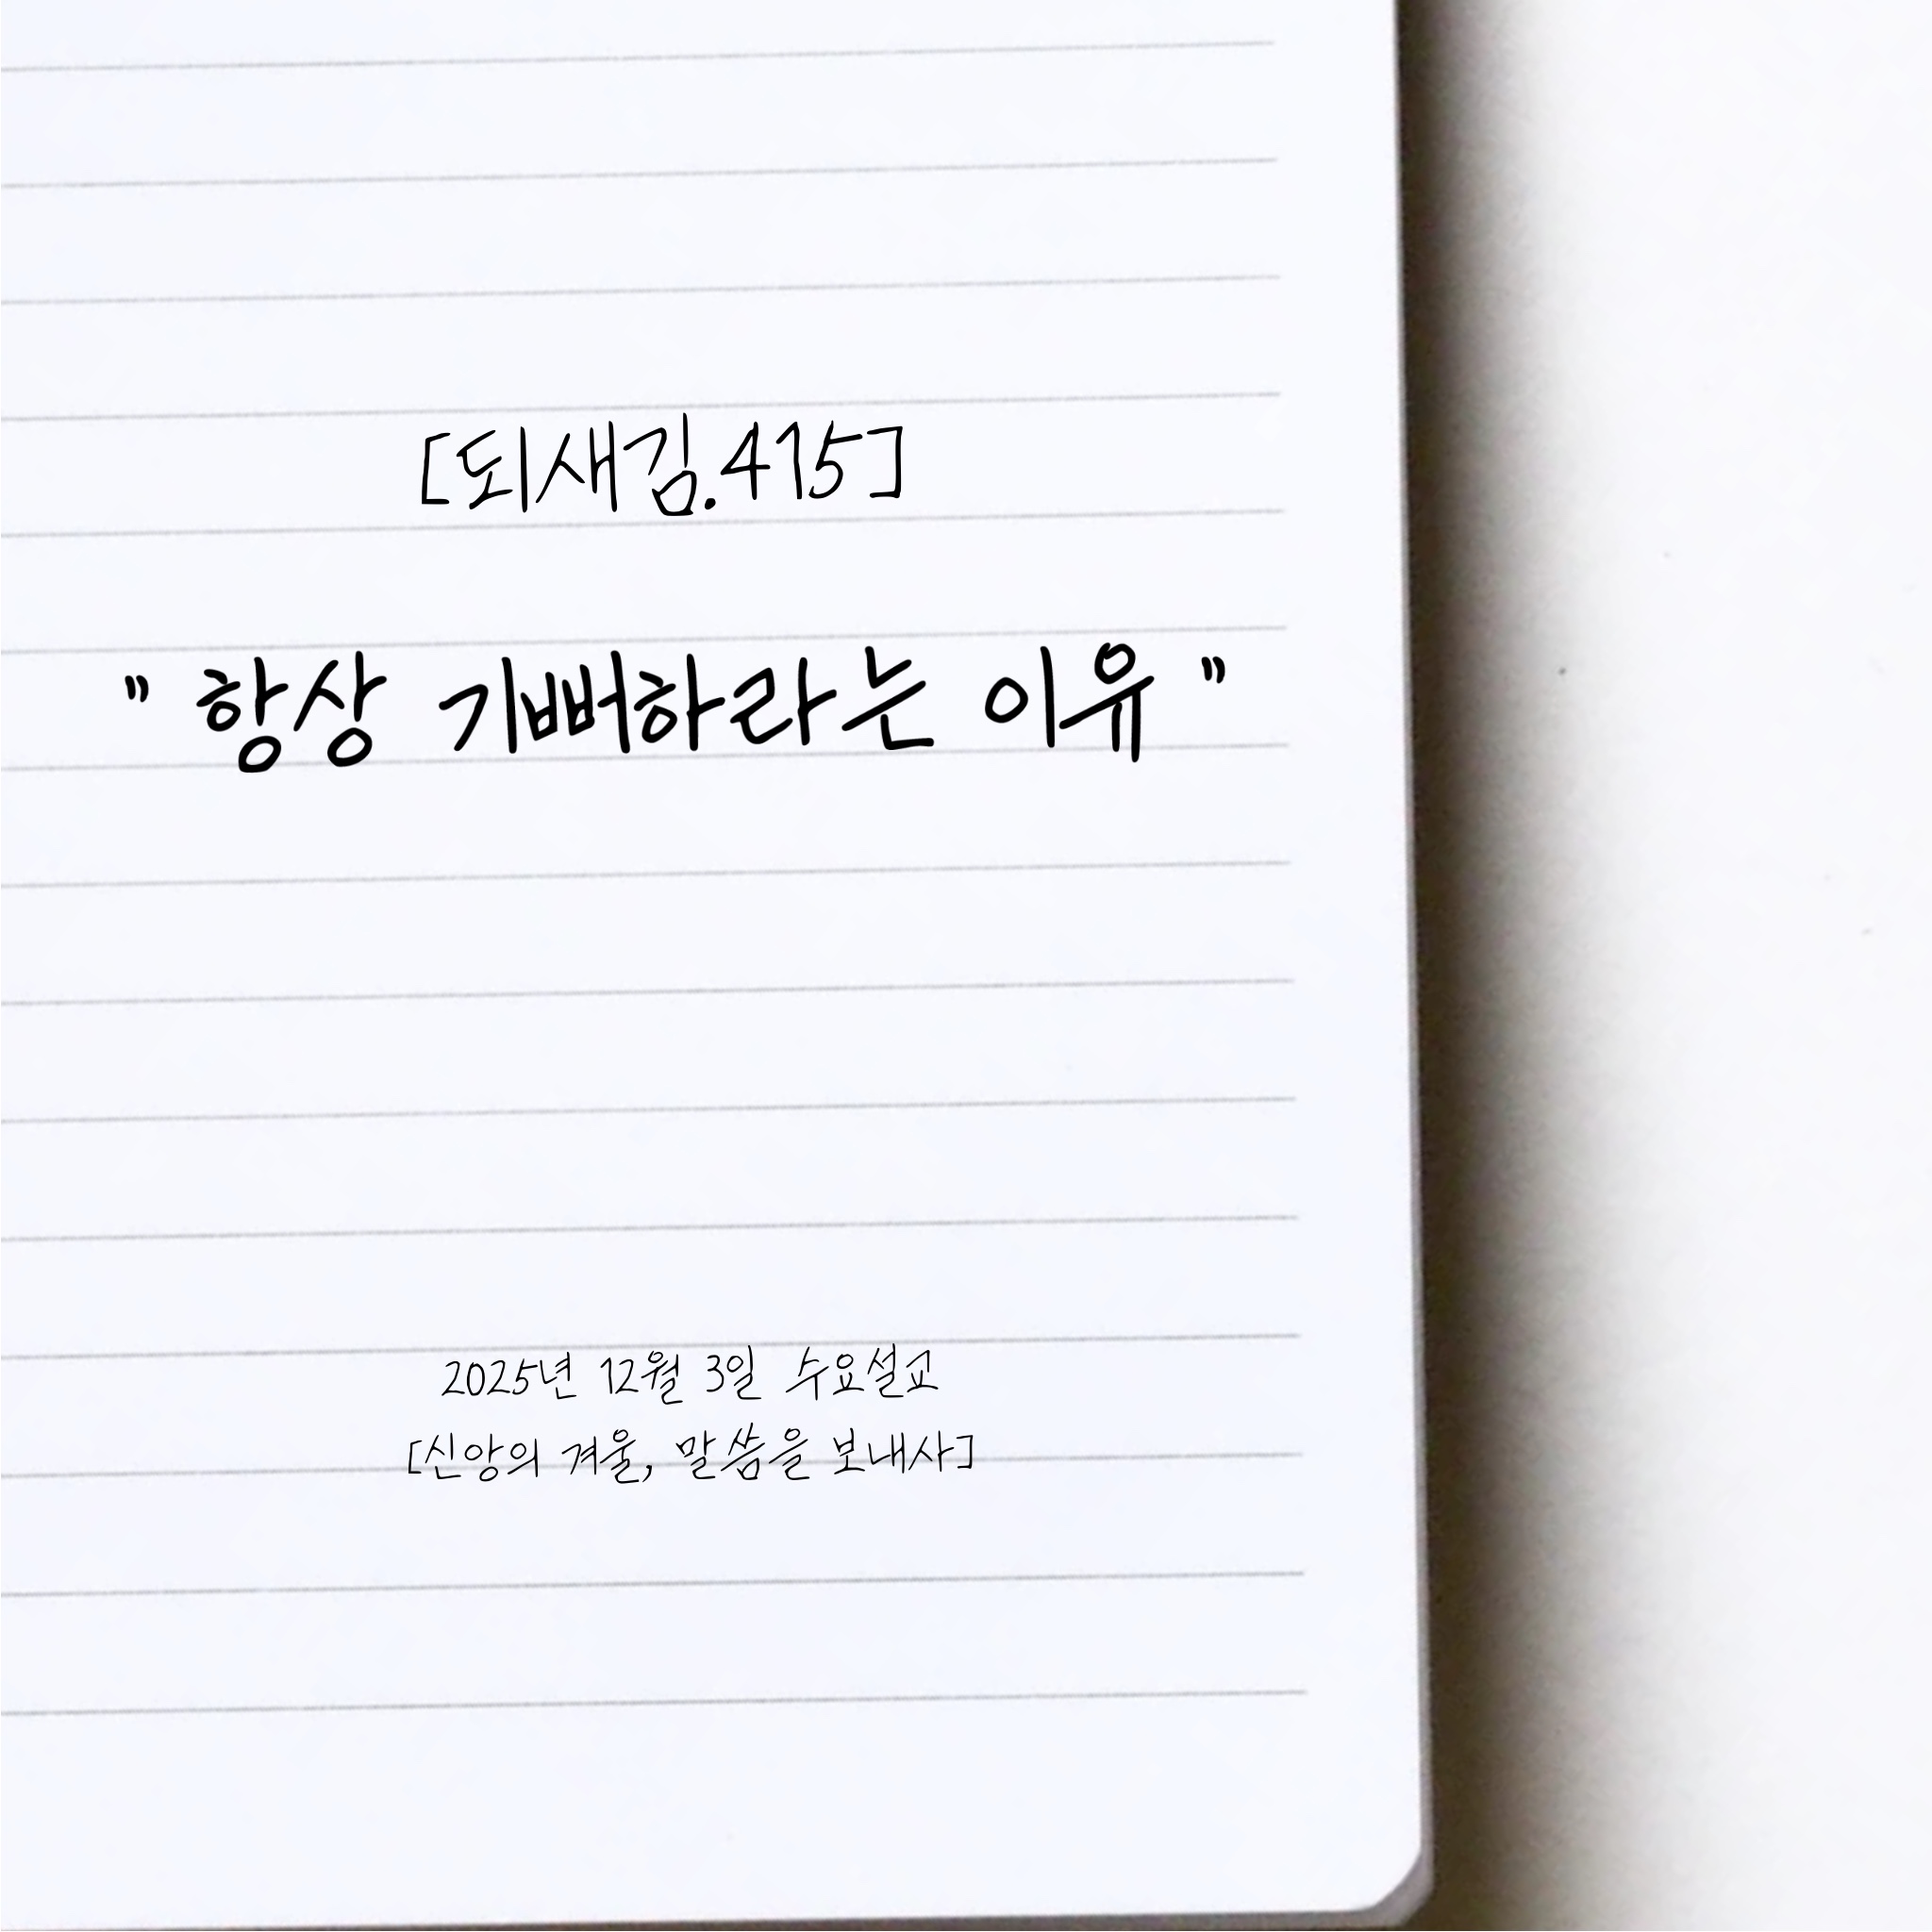 [되새김.415]
" 항상 기뻐하라는 이유 "
2025년 12월 3일 수요설교
[신앙의 겨울, 말씀을 보내사]